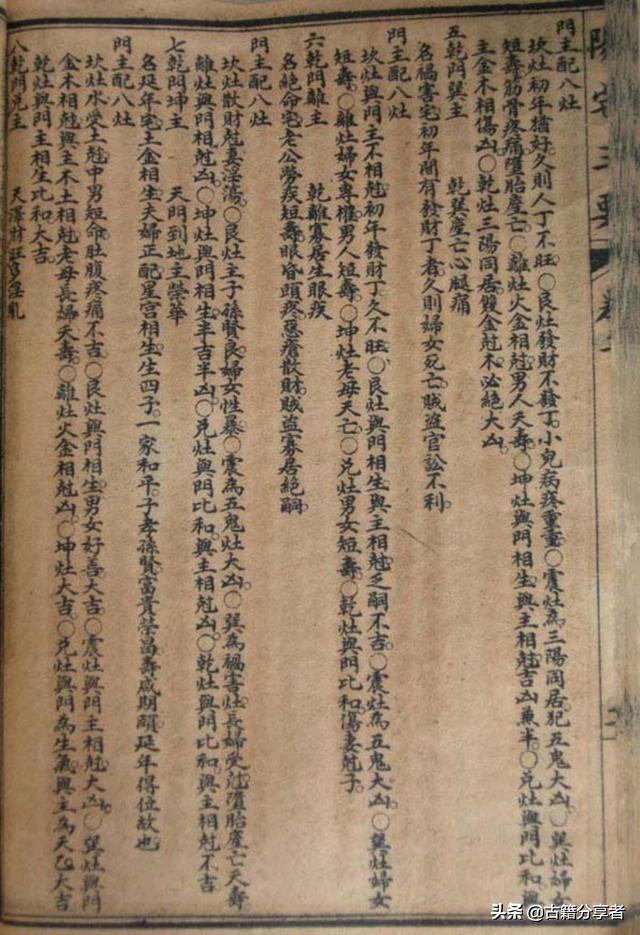 陽宅三要 卷二
門主配八灶
坎灶初年猶好久則人丁不旺○艮灶發財不發丁小兒病疾重重○震灶為三陽同居犯五鬼大凶○巽灶婦女
短壽筋骨疼痛墮胎產亡○離灶火金相尅男人夭壽○坤灶與門相生與主相尅吉凶兼半○兌灶與門比和與
主金木相傷凶○乾灶三陽同居雙金尅木必絕大凶
五乾門巽主 乾巽產亡心腿痛
名禍害宅初年間有發財丁者久則婦女死亡賊盜官訟不利
門主配八灶
坎灶與門主不相尅初年發財丁久不旺○艮灶與門相生與主相尅乏嗣不吉○震灶為五鬼大凶○巽灶婦女
短壽○離灶婦女專權男人短壽○坤灶老母夭亡○兌灶男女短壽○乾灶與門比和傷妻尅子
六乾門離主 乾離寡居生眼疾
名絕命宅老公勞疾短壽眼昏頭疼惡瘡散財賊盜寡居絕嗣
門主配八灶
坎灶散財尅妻淫蕩○艮灶主子孫賢良婦女性暴○震為五鬼灶大凶○巽為禍害灶長婦受尅墮胎產亡夭壽
離灶與門相尅凶○坤灶與門相生半吉半凶○兌灶與門比和與主相尅凶○乾灶與門比和與主相尅不吉
七乾門坤主 天門到地主榮華
名延年宅土金相生夫婦正配星宮相生生四子一家和平子孝孫賢富貴榮昌壽咸期頤延年得位故也
門主配八灶
坎灶水受土尅中男短命肚腹疼痛不吉○艮灶與門相生男女好善大吉○震灶與門主相尅大凶○巽灶與門
金木相尅與主木土相尅老母長婦夭壽○離灶火金相尅凶○坤灶大吉○兌灶與門為生氣與主為天乙大吉
乾灶與門主相生比和大吉
八乾門兌主 天澤財旺多淫亂
头条 @古籍分享者